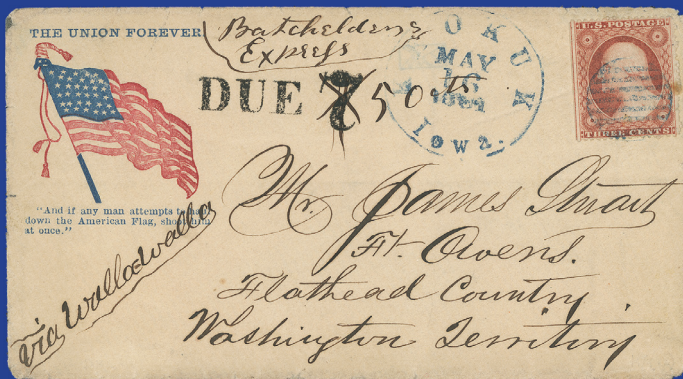 THE UNION FOREVER
Batchelders
Express
DUE 7 50 cts
KEOKUK
MAY
Iowa.
U.S. POSTAGE
THREE CENTS
"And if any man attempts to haul
down the American Flag, shoot him
at once."
Via Wallawalla
Mr. James Stuart
Ft. Owens.
Flathead Country
Washington Territory